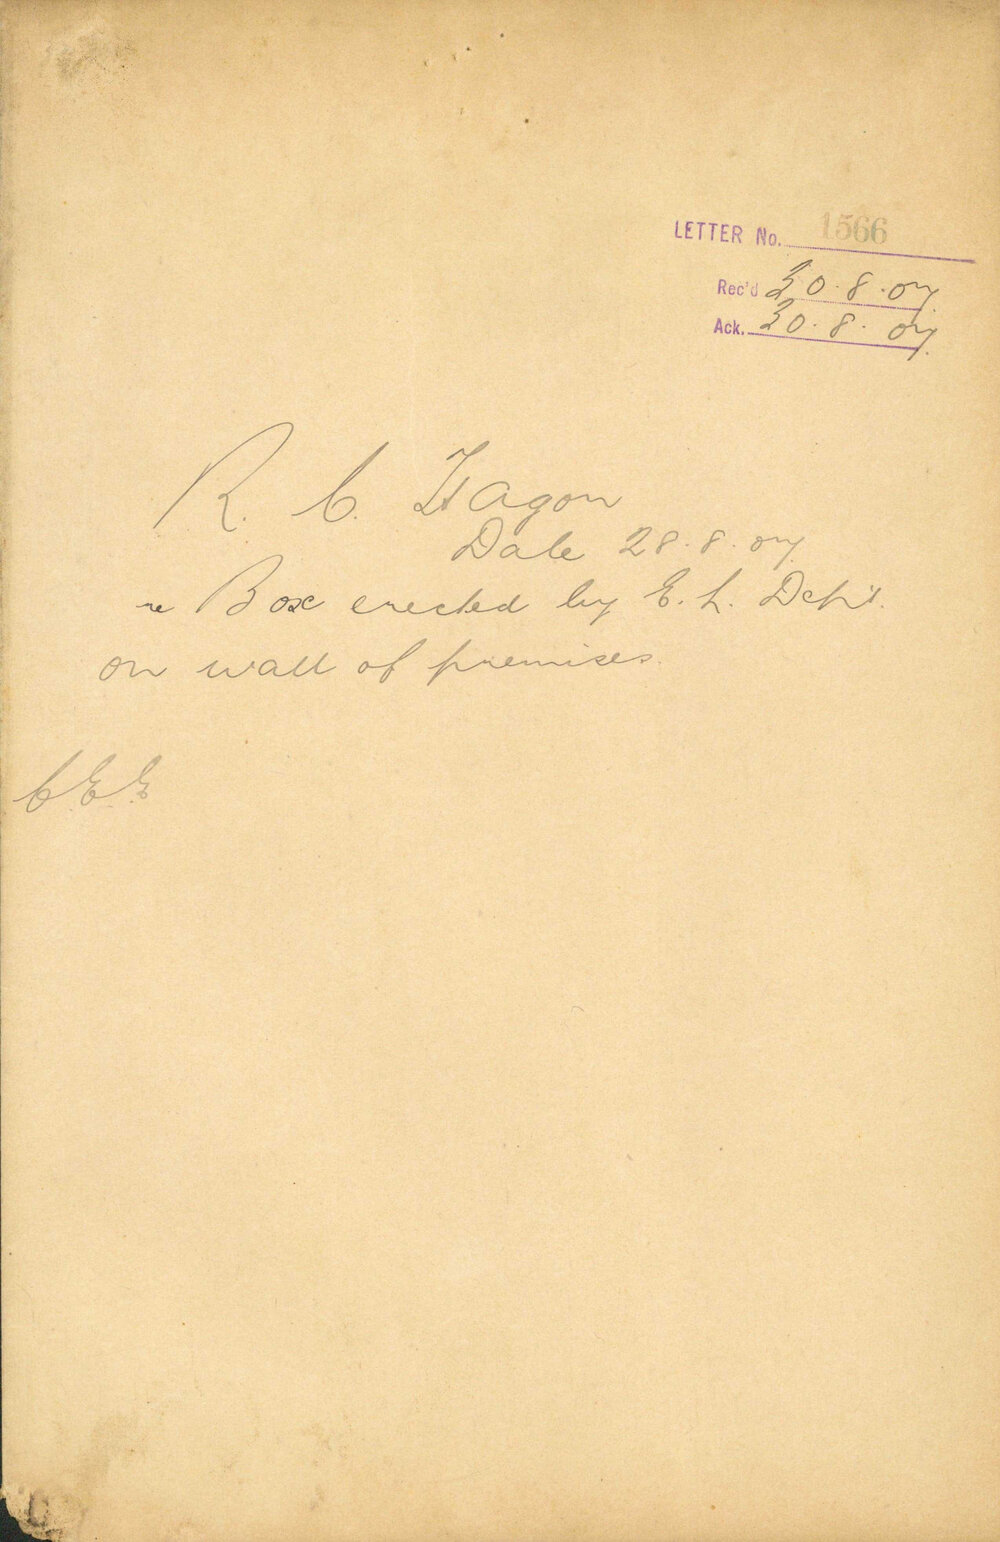 LETTER No. 1566
Rec'd 30.8.07
Ack. 30.8.07
R. C. Hagon
Date 28.8.07
re Box erected by E. L. Dept.
on wall of premises.
C.E.E